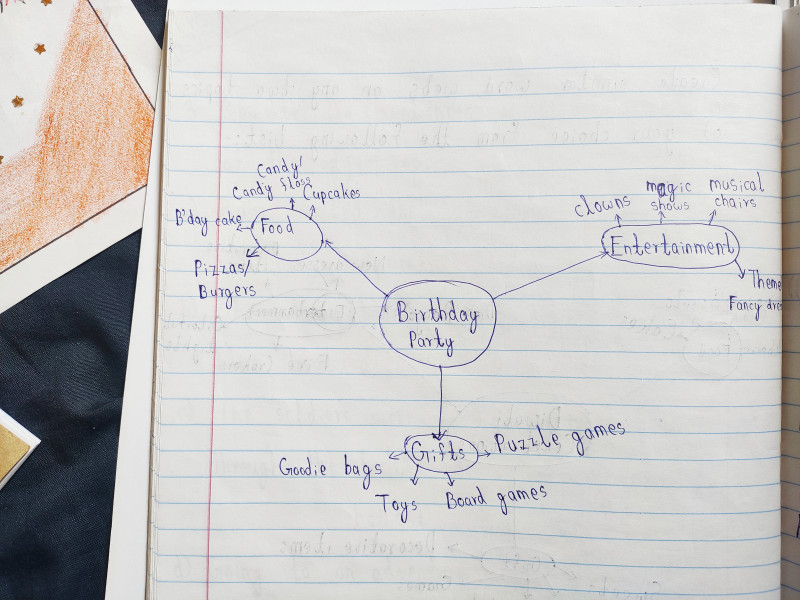 Candy/
Candy floss
Cupcakes
B'day cake
Food
Pizzas/
Burgers
clowns
magic
shows
musical
chairs
Entertainment
Theme
Fancy
Birthday
Party
Gifts
Puzzle games
Goodie bags
Toys
Board games